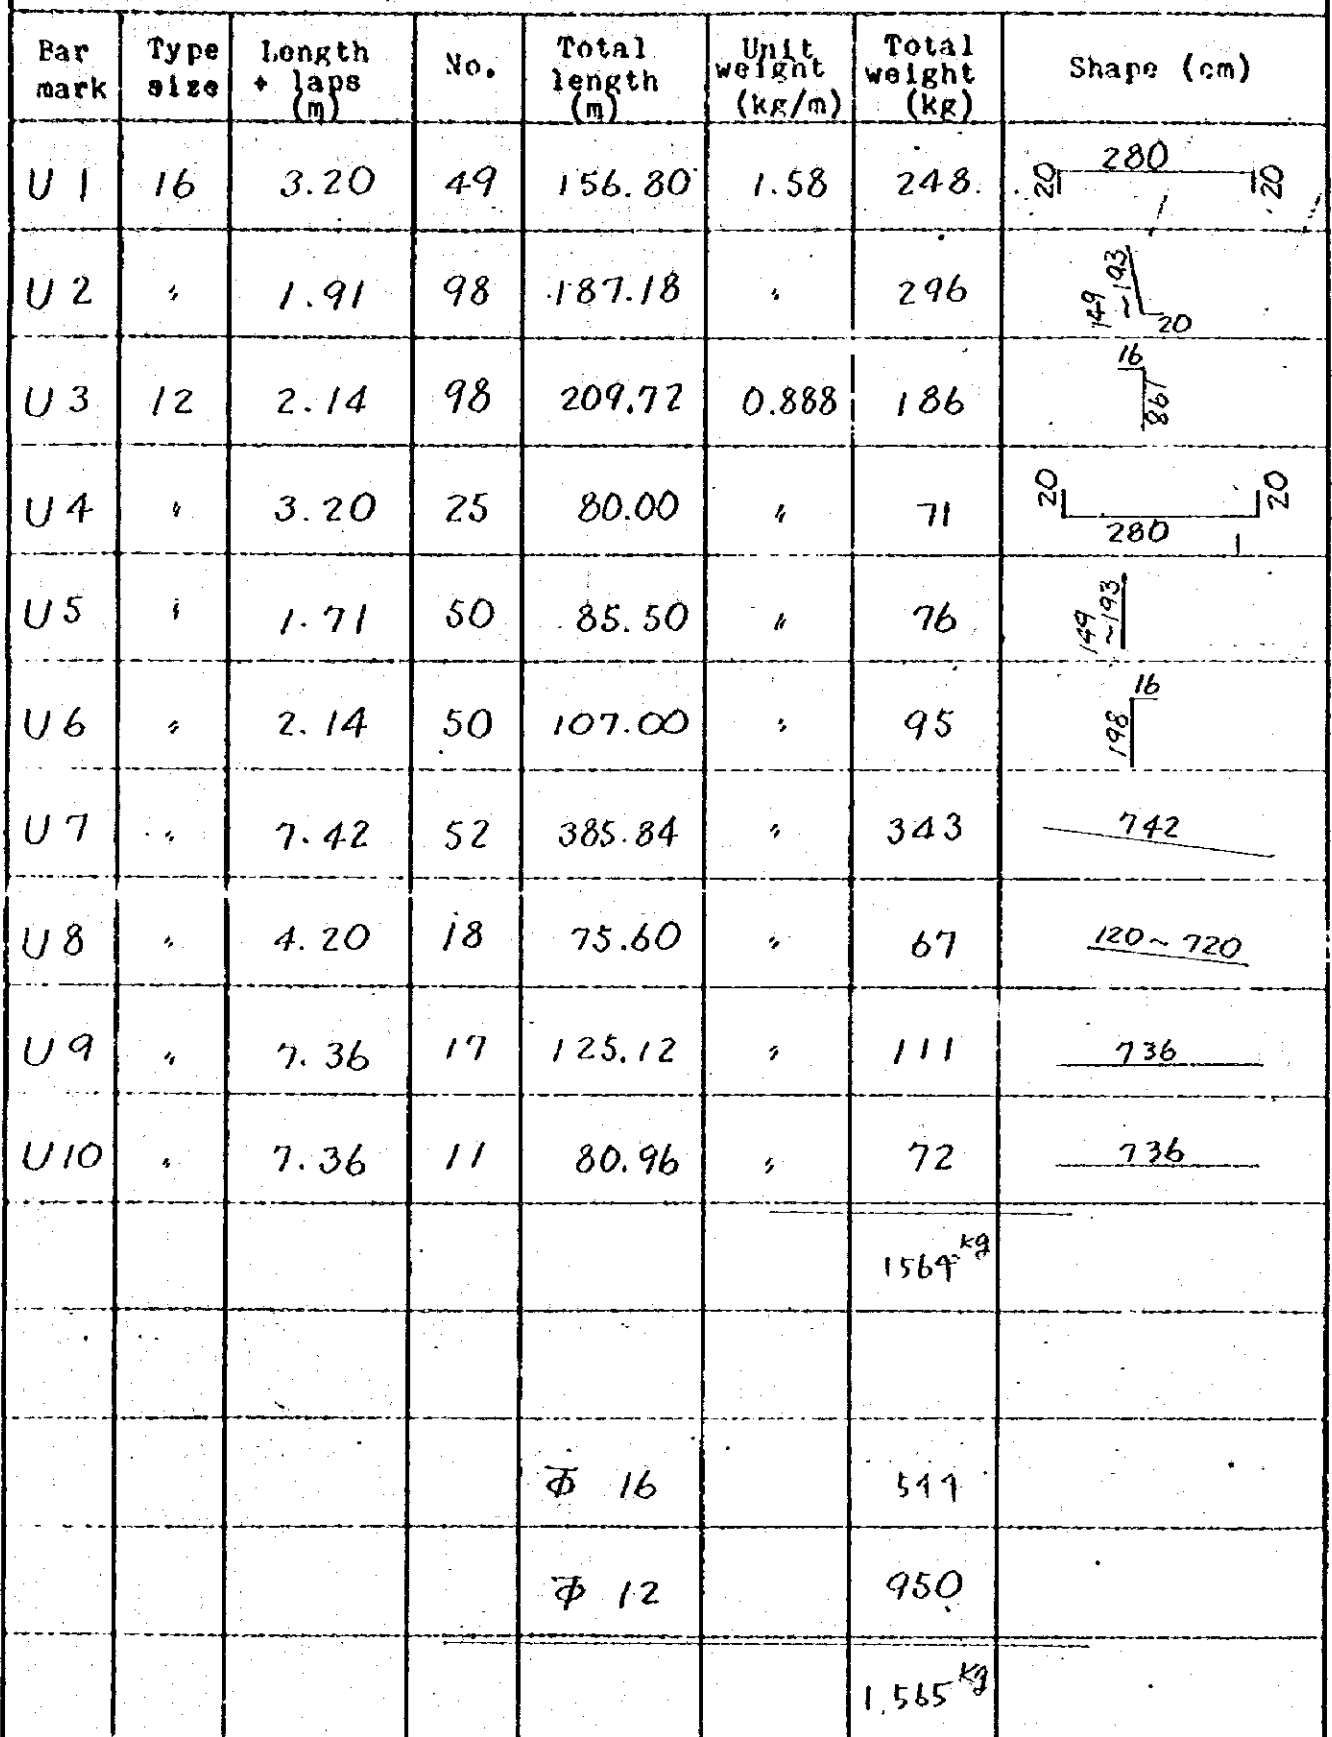 Bar mark Type size Length + laps (m) No. Total length (m) Unit weight (kg/m) Total weight (kg) Shape (cm)
U 1 16 3.20 49 156.80 1.58 248. 20 280 20
U 2 〃 1.91 98 187.18 〃 296 149 ~193 20
U 3 12 2.14 98 209.72 0.888 186 16 198
U 4 〃 3.20 25 80.00 〃 71 20 280 20
U 5 〃 1.71 50 85.50 〃 76 149 ~193
U 6 〃 2.14 50 107.00 〃 95 198 16
U 7 〃 7.42 52 385.84 〃 343 742
U 8 〃 4.20 18 75.60 〃 67 120~720
U 9 〃 7.36 17 125.12 〃 111 736
U 10 〃 7.36 11 80.96 〃 72 736
kg
Φ 16
Φ 12 950
1,565 kg